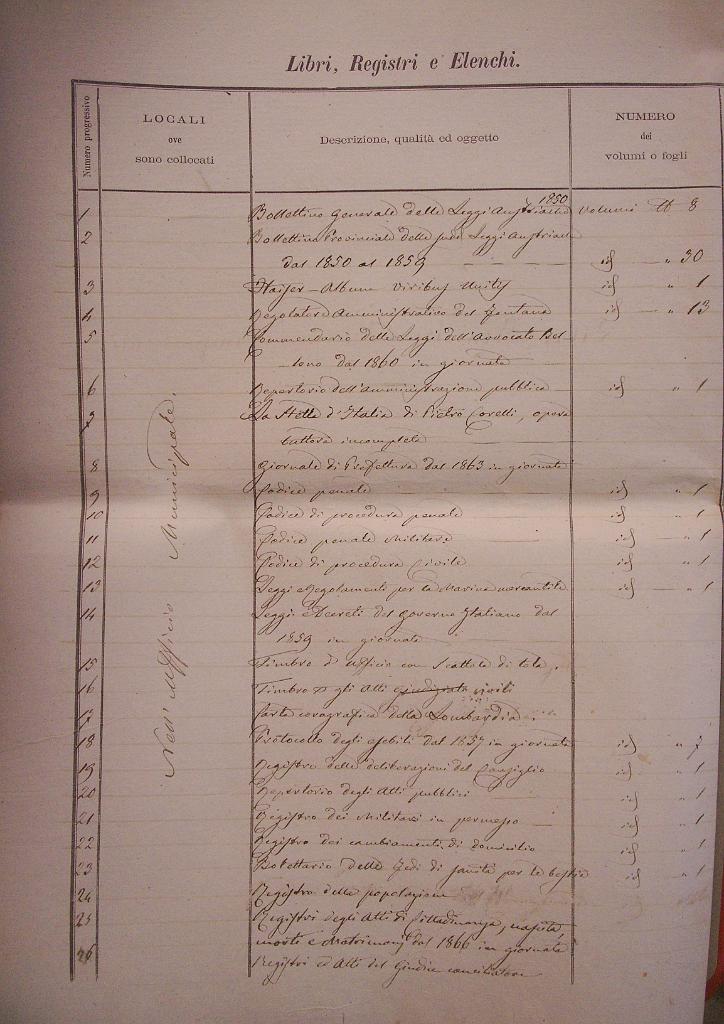 Libri, Registri e Elenchi.
Numero progressivo
LOCALI
ove
sono collocati
Descrizione, qualità ed oggetto
NUMERO
dei
volumi o fogli
Nell' Ufficio Municipale.
1850
1 Bollettino Generale delle Leggi Austriache volumi N 8
2 Bollettino Provinciale delle Leggi Austriache
dal 1850 al 1859 id " 30
3 Kaiser-Album Viribus Unitis id " 1
4 Regolatore Amministrativo del Fontana id " 13
5 Commendario delle Leggi dell'Avvocato Bel
lono dal 1860 in giornata
6 Repertorio dell'Amministrazione pubblica id " 1
7 La Stella d'Italia di Pietro Corelli, opera
tuttora incompleta
8 Giornale di Prefettura dal 1863 in giornata
9 Codice penale id " 1
10 Codice di procedura penale id " 1
11 Codice penale Militare id " 1
12 Codice di procedura Civile id " 1
13 Leggi e Regolamenti per la Marina mercantile id " 1
14 Leggi e Decreti del Governo Italiano dal
1859 in giornata
15 Timbro d' Ufficio con Scattola di tola.
16 Timbro gli Atti civili
17 Carta corografica della Lombardia.
18 Protocollo degli esebiti dal 1857 in giornata id " 7
19 Registro delle deliberazioni del Consiglio id " 1
20 Repertorio degli Atti pubblici id " 1
21 Registro dei Militari in permesso id " 1
22 Registro dei cambiamenti di domicilio id " 1
23 Bolettario delle Fedi di sanità per le bestie id " 1
24 Registro della popolazione
25 Registri degli Atti di Cittadinanza, nascita,
morte e Matrimonj dal 1866 in giornata
26 Registri ed Atti del Giudice conciliatore